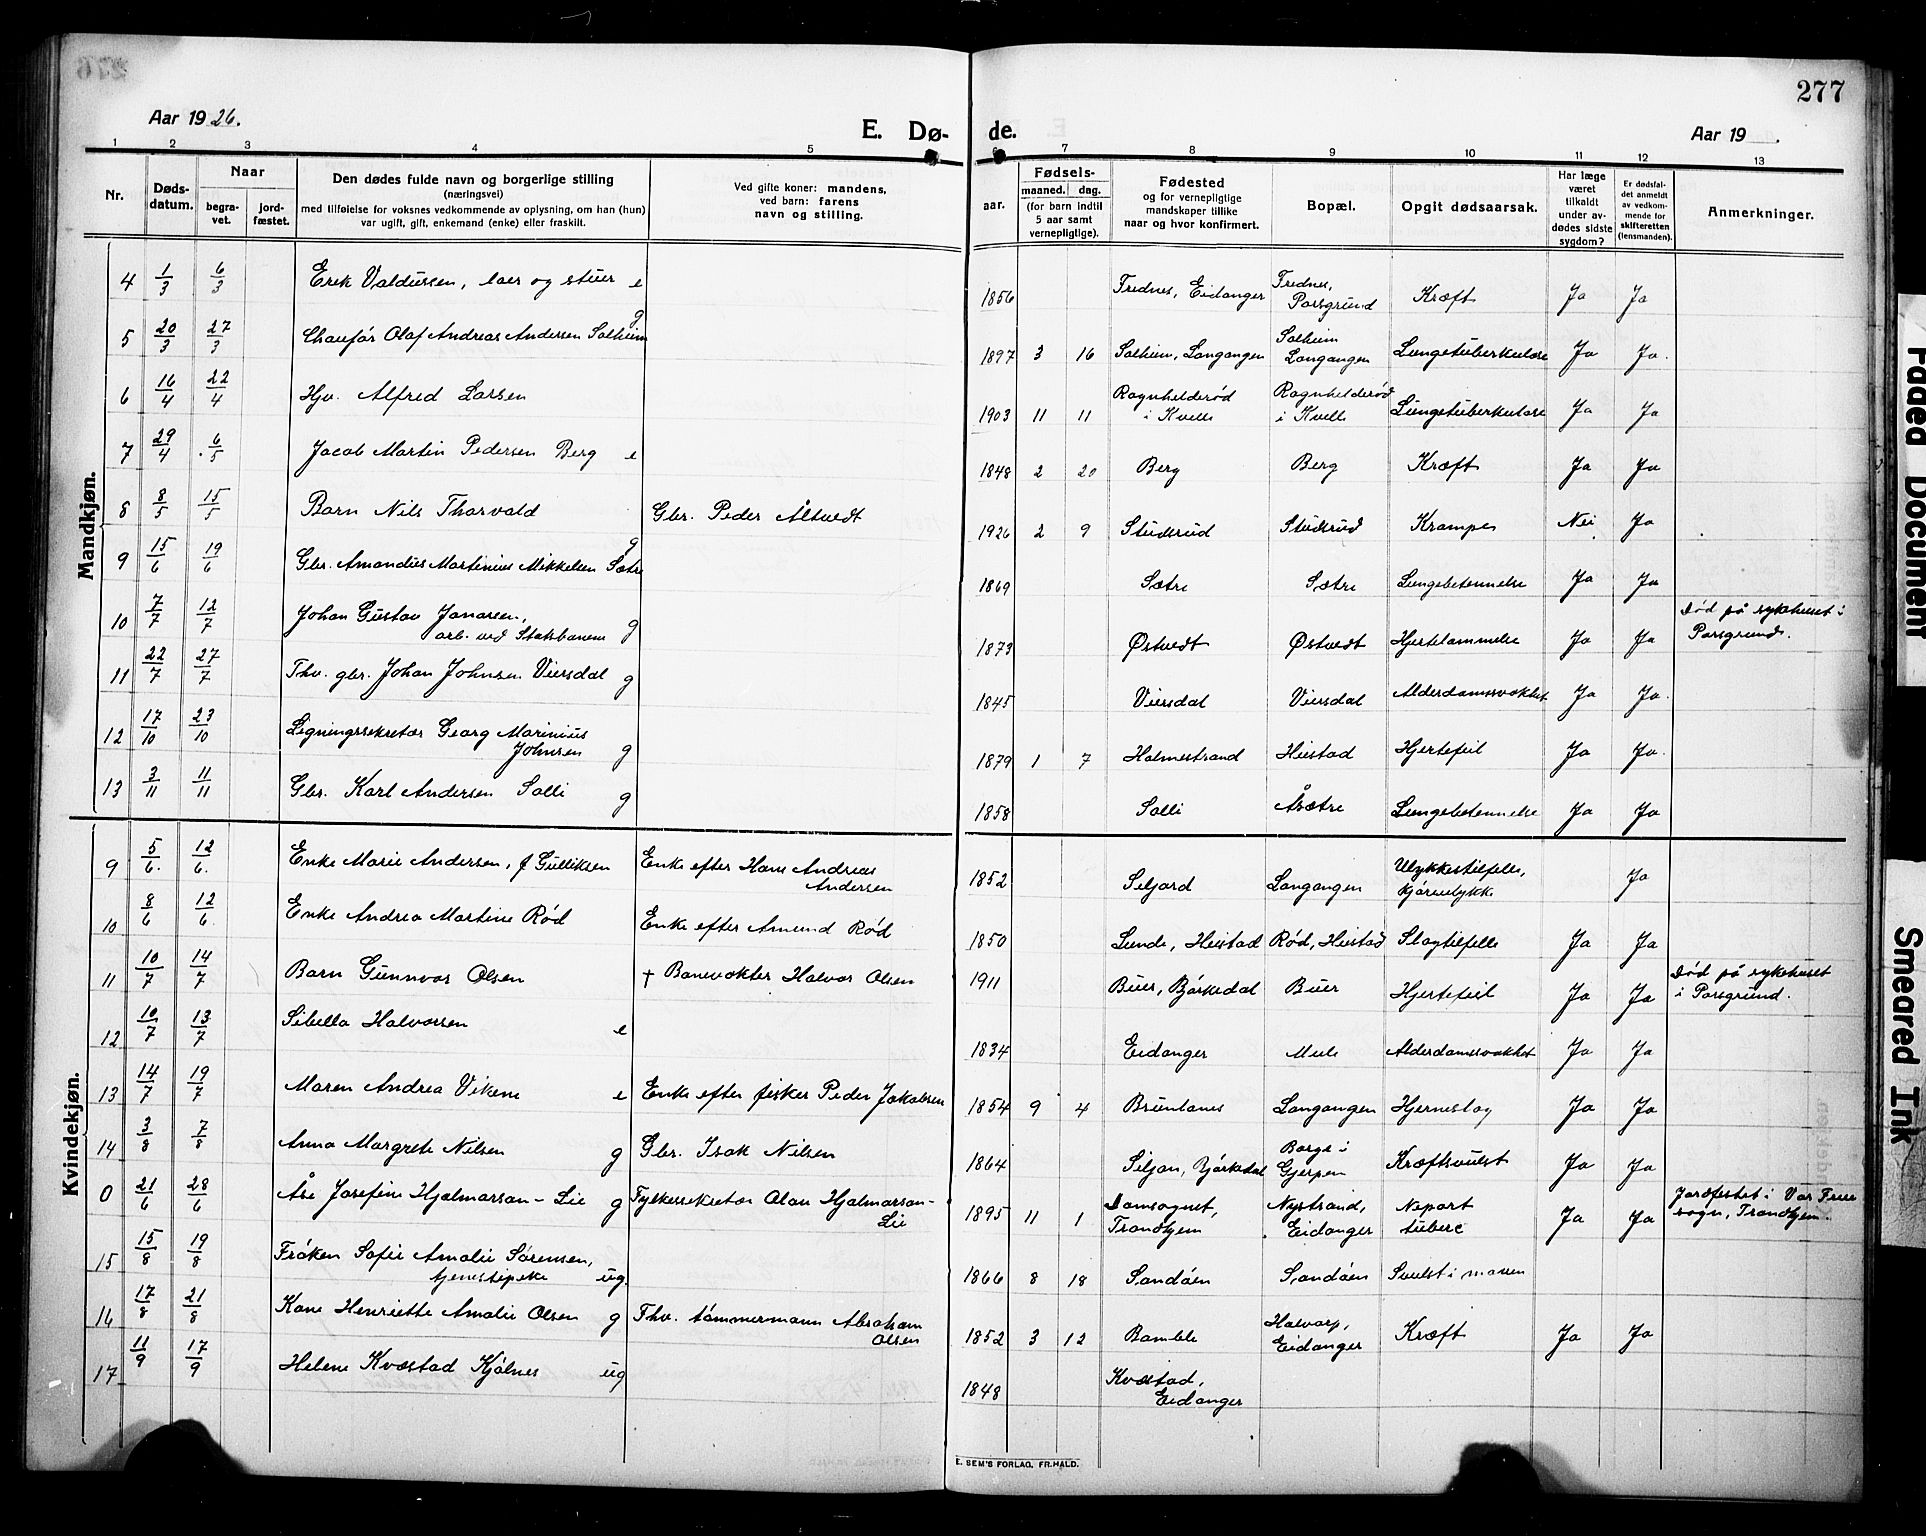 276
277
Aar 1926.
E. Dø- de.
Aar 19 .
1 2 3 4 5 6 7 8 9 10 11 12 13
Nr.
Døds-
datum.
Naar
begra-
vet.
jord-
fæstet.
Den dødes fulde navn og borgerlige stilling
(næringsvei)
med tilføielse for voksnes vedkommende av oplysning, om han (hun)
var ugift, gift, enkemand (enke) eller fraskilt.
Ved gifte koner: mandens,
ved barn: farens
navn og stilling.
aar.
Fødsels-
maaned. dag.
(for barn indtil
5 aar samt
vernepligtige).
Fødested
og for vernepligtige
mandskaper tillike
naar og hvor konfirmert.
Bopæl.
Opgit dødsaarsak.
Har læge
været
tilkaldt
under av-
dødes sidste
sygdom?
Er dødsfal-
det anmeldt
av vedkom-
mende for
skifteretten
(lensmanden).
Anmerkninger.
Mandkjøn.
4 1/3 6/3 Erik Valdursen, loer og stuer e 1856 Frednes, Eidanger Frednes, Porsgrund Kræft Ja Ja
5 20/3 27/3 Chaufør Olaf Andreas Andersen Solheim g 1897 3 16 Solheim, Langangen Solheim Langangen Lungetuberkulose Ja Ja.
6 16/4 22/4 Hjv. Alfred Larsen 1903 11 11 Ragnhelderød i Kvelle Ragnhelderød i Kvelle Lungetuberkulose Ja Ja
7 29/4 6/5 Jacob Martin Pedersen Berg e 1848 2 20 Berg Berg Kræft Ja Ja
8 8/5 15/5 Barn Nils Thorvald Gbr. Peder Åltvedt 1926 2 9 Studsrud Studsrud Krampe Nei Ja
9 15/6 19/6 Gbr. Amandus Martinius Mikkelsen Sætre g 1869 Sætre Sætre Lungebetennelse Ja Ja
10 7/7 12/7 Johan Gustav Jonassen,
arb. ved Statsbanene g 1873 Østvedt Østvedt Hjertelammelse Ja Ja Død på sykehuset i
Porsgrund.
11 22/7 27/7 Fhv. gbr. Johan Johnsen Viersdal g 1845 Viersdal Viersdal Alderdomssvakhet Ja Ja.
12 17/10 23/10 Ligningssekretær Georg Marinius
Johnsen g 1879 1 7 Holmestrand Heistad Hjertefeil Ja Ja.
13 3/11 11/11 Gbr. Karl Andersen Solli g 1858 Solli Åsætre Lungebetennelse Ja Ja
Kvindekjøn.
9 5/6. 12/6. Enke Marie Andersen, f Gulliksen Enke efter Hans Andreas
Andersen 1852 Seljord Langangen Ulykkestilfelle,
kjøreulykke Ja
10 8/6 12/6. Enke Andrea Martine Rød Enke efter Amund Rød 1850 Lunde, Heistad Rød, Heistad Slagtilfelle Ja Ja
11 10/7 14/7 Barn Gunnvor Olsen † Banevokter Halvor Olsen 1911 Buer, Bjørkedal Buer Hjertefeil Ja Ja Død på sykehuset
i Porsgrund.
12 10/7 13/7 Sibella Halvorsen e 1834 Eidanger Mule Alderdomssvakhet Ja Ja
13 14/7 19/7 Maren Andrea Vikene e Enke efter fisker Peder Jakobsen 1854 9 4 Brunlanes Langangen Hjerneslag Ja Ja
14 3/8 7/8 Anna Margrete Nilsen g Gbr. Isak Nilsen 1864 Siljan, Bjørkedal Borge i
Gjerpen Kræftsvulst Ja Ja
0 21/6 28/6 Åse Josefine Hjalmarson-Lie g Fylkessekretær Olav Hjalmarson-
Lie 1895 11 1 Domsognet,
Trondhjem Nystrand,
Eidanger Ja Ja Jordfestet i Vor Frue
sogn, Trondhjem.
15 15/8 19/8 Frøken Sofie Amalie Sørensen,
tjenestepike ug. 1866 8 18 Sandøen Sandøen Svulst i maven
16 17/8 21/8 Kone Henriette Amalie Olsen g Fhv. tømmermann Abraham
Olsen 1852 3 12 Bamble Halvarp,
Eidanger Kræft Ja Ja
17 11/9 17/9 Helene Kvestad Kjølnes ug 1848 Kvestad,
Eidanger
E. SEM'S FORLAG, FR.HALD.
Faded Document
Smeared Ink